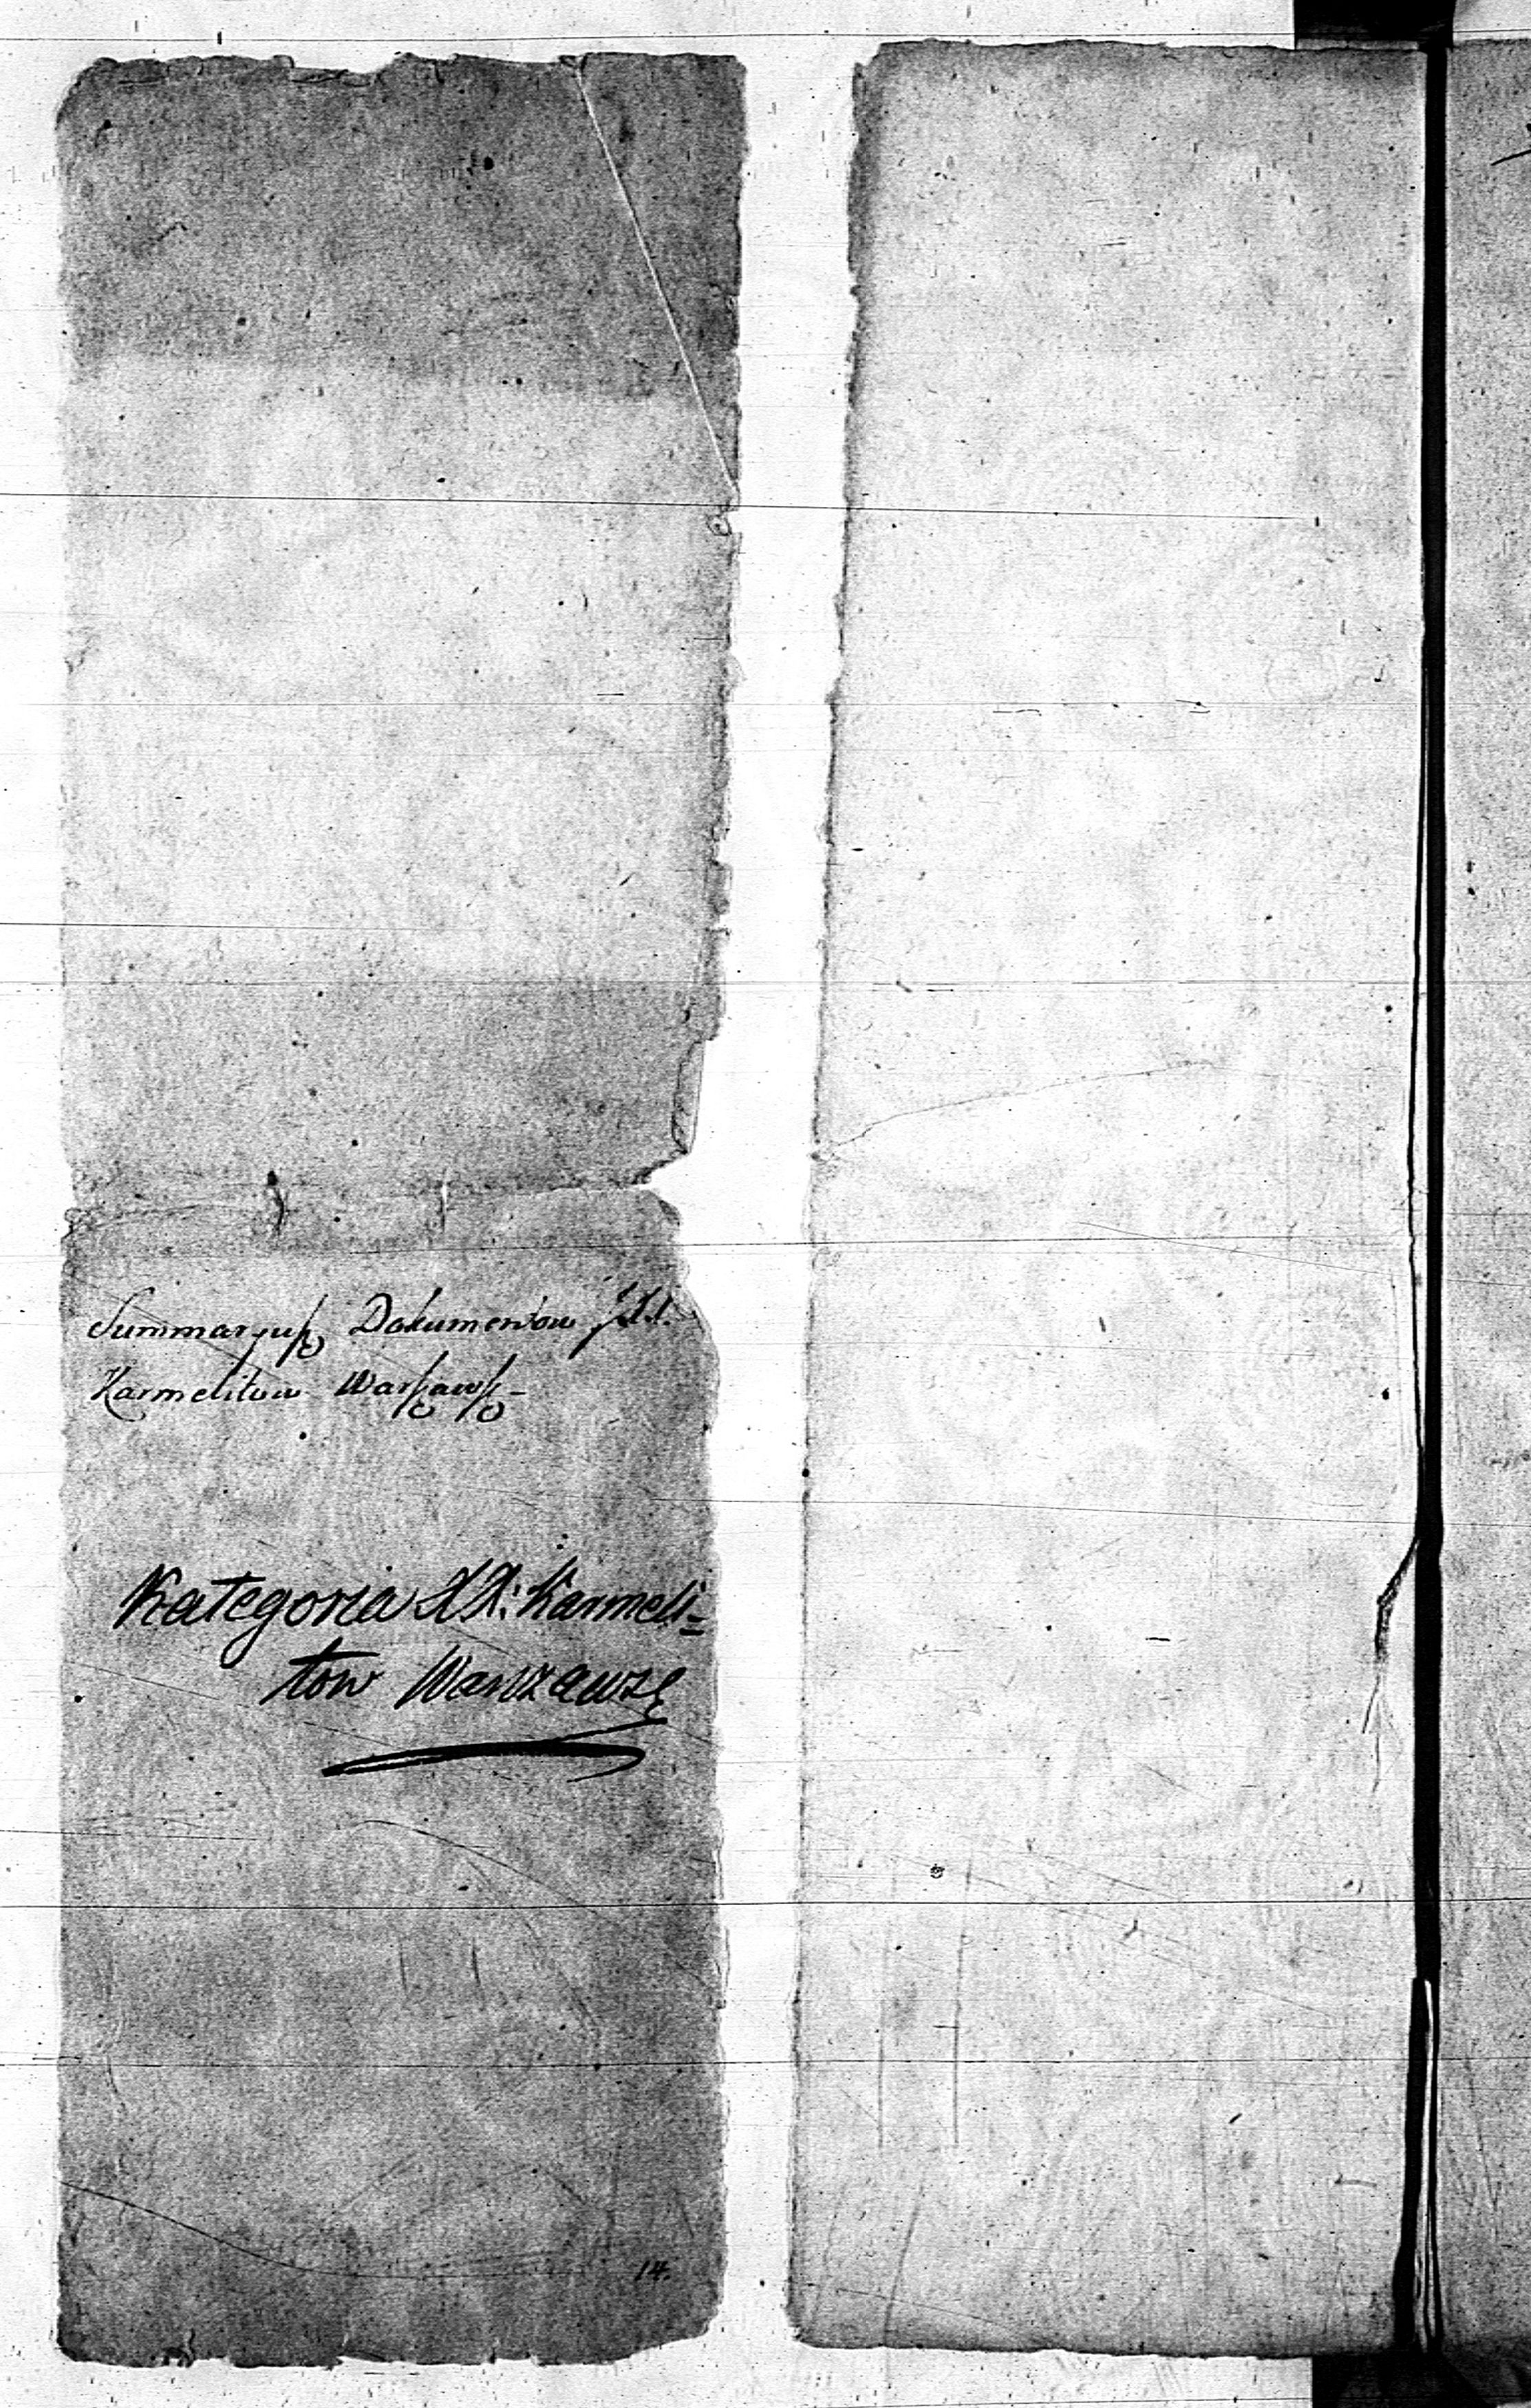 Summaryusz Dokumentow
Karmelitow Warszawsz-
Kategoria XX: Karmeli=
tow Warszawsz
14.